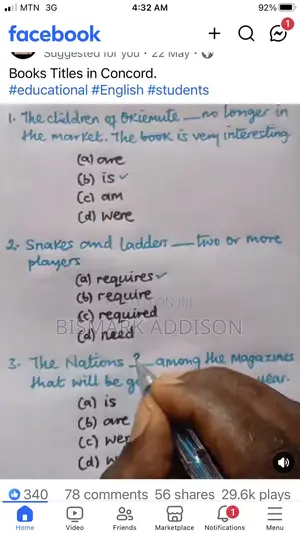 MTN 3G 4:32 AM 92%
facebook
1
Suggested for you · 22 May ·
Books Titles in Concord.
#educational #English #students
1. The children of Okiemute __ no longer in
the market. The book is very interesting.
(a) are
(b) is ✓
(c) am
(d) were
2. Snakes and ladder __ two or more
players
(a) requires ✓
(b) require
(c) required
(d) need
BISMARK ADDISON
3. The Nations ? among the Magazines
that will be year.
(a) is
(b) are
(c)
(d)
340 78 comments 56 shares 29.6k plays
1
Home Video Friends Marketplace Notifications Menu